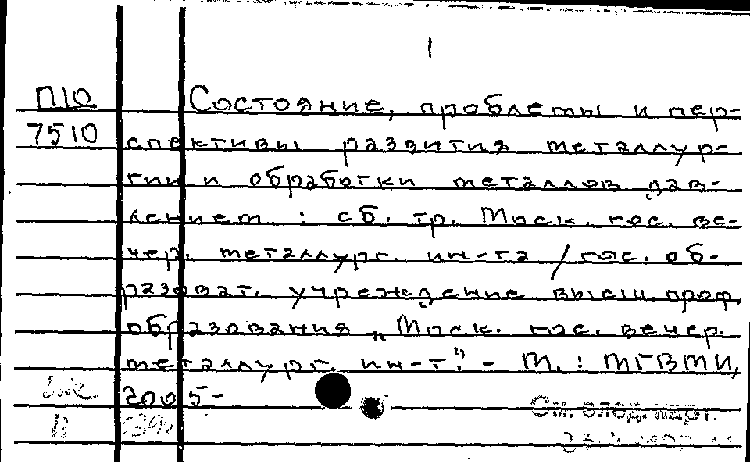 1
П10 Состояние, проблемы и пер-
7510 спективы развития металлур-
гии и обработки металлов дав-
лением : сб. тр. Моск. гос. ве-
чер. металлург. ин-та / гос. об-
разоват. учреждение высш. проф.
образования „Моск. гос. вечер.
металлург. ин-т". - М. : МГВМИ,
2005 -
См. след. карт.